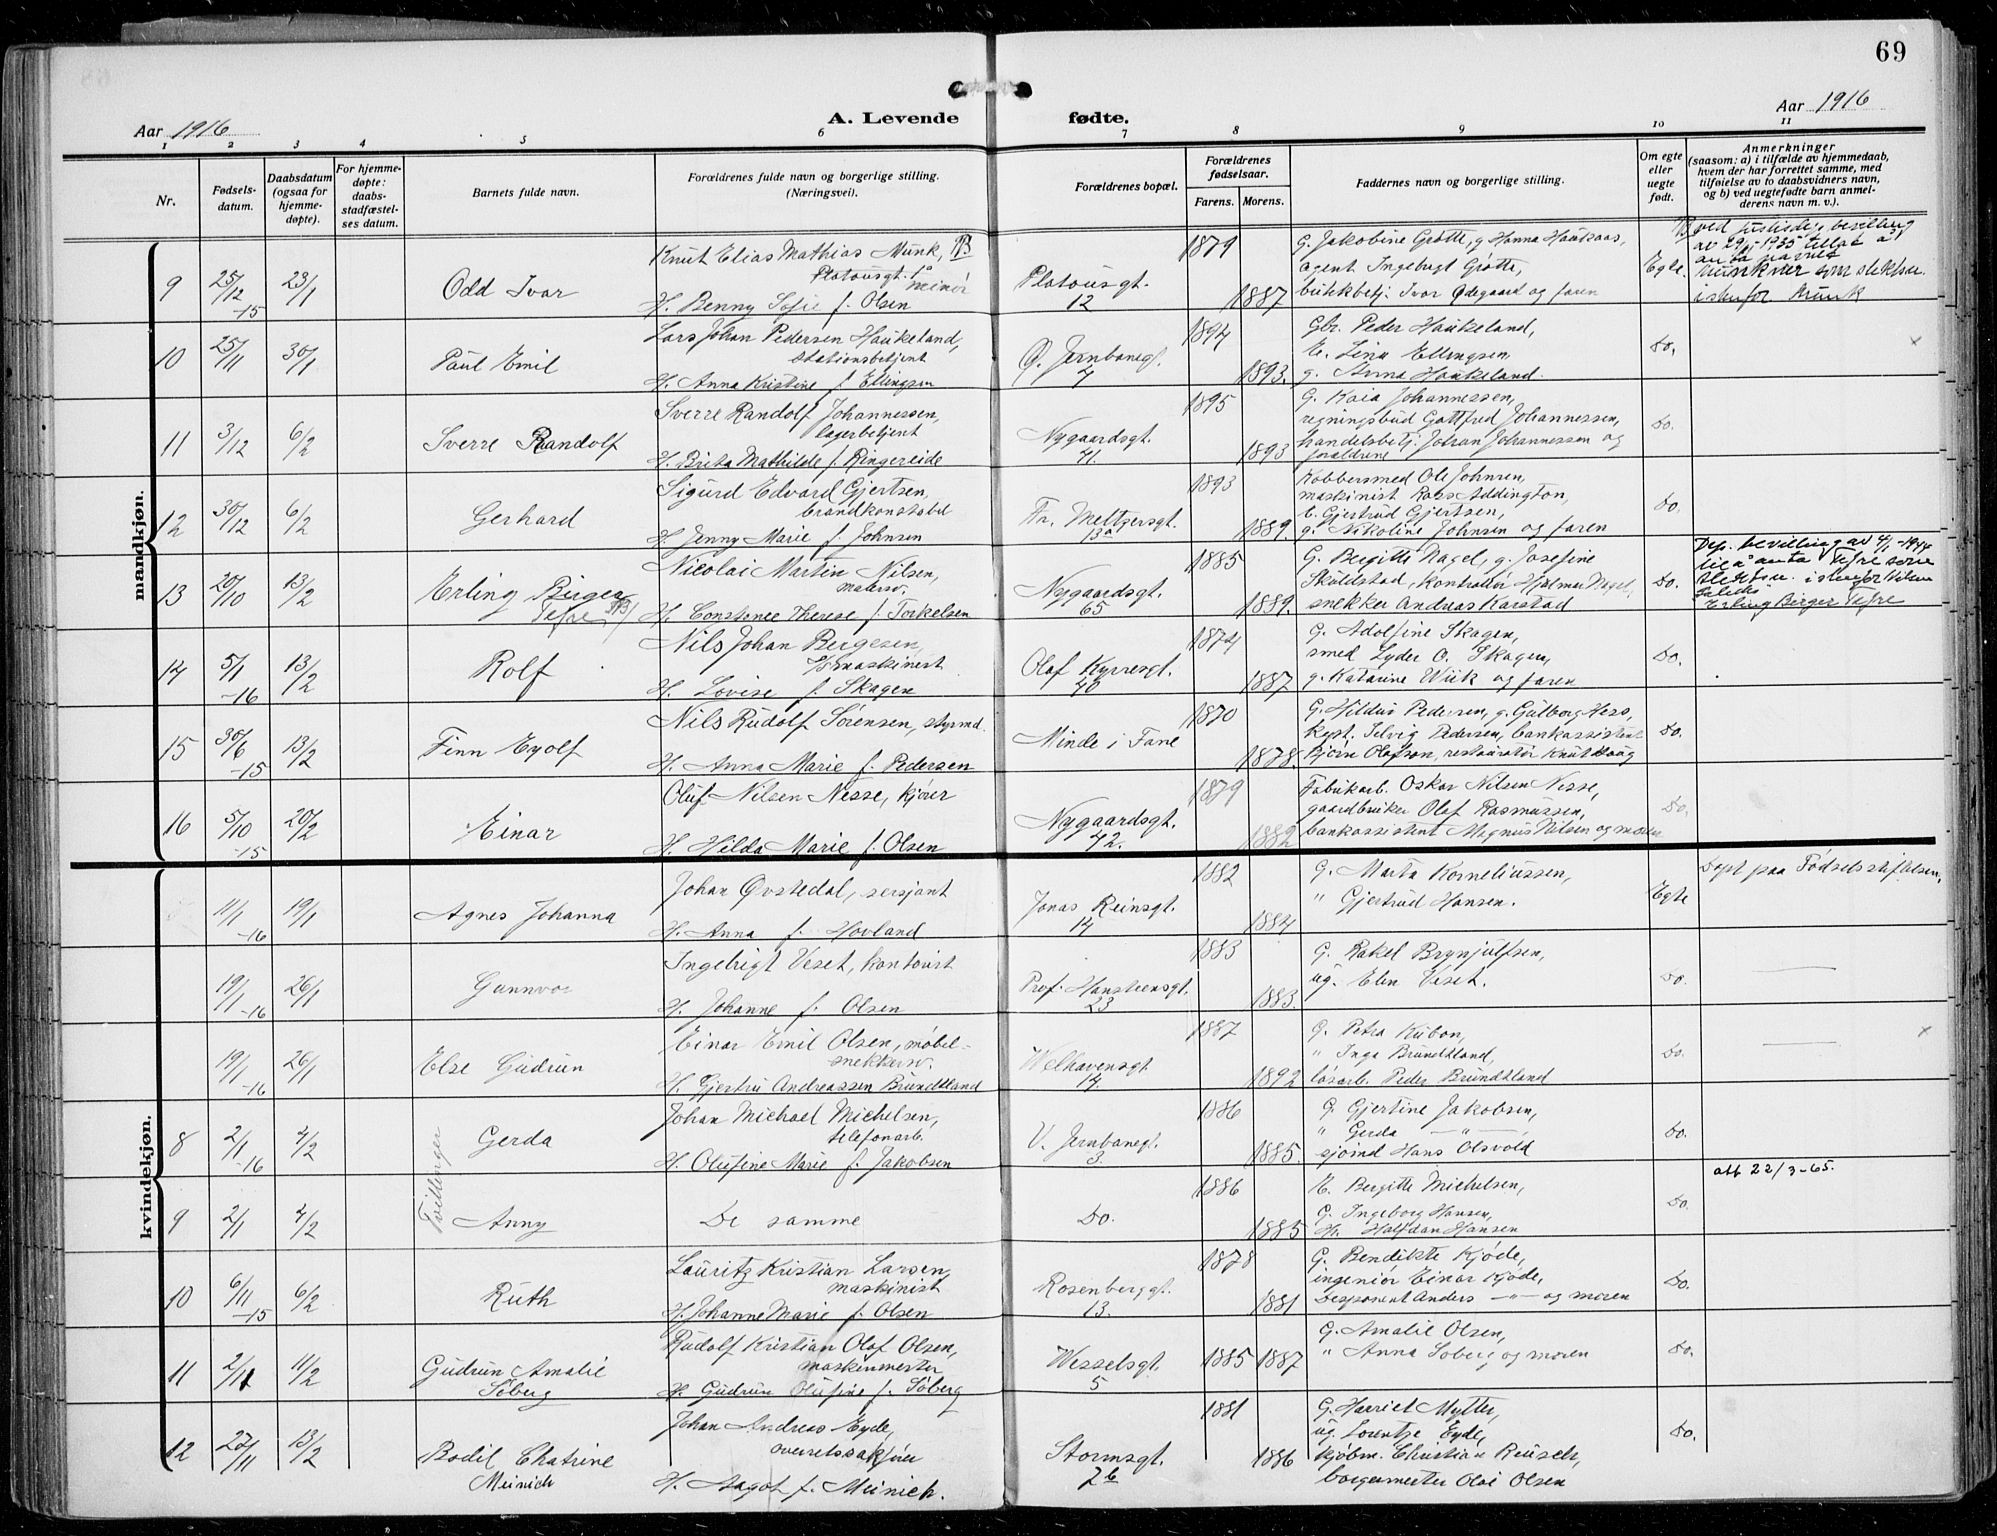 69
Aar 1916
A. Levende fødte.
Aar 1916
1 2 3 4 5 6 7 8 9 10 11
Nr.
Fødsels-
datum.
Daabsdatum
(ogsaa for
hjemme-
døpte).
For hjemme-
døpte:
daabs-
stadfæstel-
ses datum.
Barnets fulde navn.
Forældrenes fulde navn og borgerlige stilling.
(Næringsvei).
Forældrenes bopæl.
Forældrenes
fødselsaar.
Farens. Morens.
Faddernes navn og borgerlige stilling.
Om egte
eller
uegte
født.
Anmerkninger
(saasom: a) i tilfælde av hjemmedaab,
hvem der har forrettet samme, med
tilføielse av to daabsvidners navn,
og b) ved uegtefødte barn anmel-
derens navn m. v.).
mandkjøn.
9 25/12 -15 23/1 Odd Ivar
Knut Elias Mathias Munk,
minør
H. Benny Sofie f. Olsen
Platousgt.
12
1879 1887
G. Jakobine Grotte, g. Hanna Haukaas,
agent Ingebrigt Grotte,
butikkbetj. Ivar Ødegaard og faren
Egte.
ved justisdep. bevilling
av 29/5 1935 tillat å
anta navnet
Munkner som slektsn.
istenfor Munk
10 25/11 30/1 Paul Emil
Lars Johan Pedersen Haukeland,
stationsbetjent
H. Anna Kristine f. Ellingsen
Ø. Jernbanegt.
7
1894 1893.
Gbr. Peder Haukeland,
E. Lina Ellingsen
g. Anna Haukeland.
Do.
11 3/12 6/2 Sverre Randolf
Sverre Randolf Johannessen,
lagerbetjent
H. Brita Mathilde f. Ringereide
Nygaardsgt.
41.
1895 1893
G. Kaia Johannessen,
regningsbud Gottfred Johannessen,
handelsbetj. Johan Johannessen og
forældrene
Do.
12 30/12 6/2 Gerhard
Sigurd Edvard Gjertsen,
brandkonstabel
H. Jenny Marie f. Johnsen
Fr. Meltzersgt.
13a
1893 1889.
Kobbersmed Ole Johnsen,
maskinist Ross Addington,
E. Gjertrud Gjertsen,
g. Nikoline Johnsen og faren
Do.
13 20/10 13/2 Erling Birger
Tefre
Nicolai Martin Nilsen,
malersv.
H. Constance Therese f. Torkelsen
Nygaardsgt.
65
1885 1889.
G. Bergitte Nagel, g. Josefine
Skuldstad, kontrolør Hjalmar Nagel,
snekker Andreas Karstad
Do.
Dep. bevilling av 4/1-1944
til å anta Tefre som
slektsn. istenfor Nilsen
Erling Birger Tefre
14 5/1 -16 13/2 Rolf
Nils Johan Bergesen,
maskinist
H. Lovise f. Skagen
Olaf Kyrresgt.
40
1874 1887
G. Adolfine Skagen,
smed Lyder O. Skagen,
g. Katarine Wiik og faren
Do.
15 30/6 -15 13/2 Finn Eyolf
Nils Rudolf Sørensen, styrmd.
H. Anna Marie f. Pedersen
Minde i Fane
1870 1878.
G. Hildur Pedersen, g. Gulborg Hess,
kapt. Selvig Pedersen, bankassistent
Bjørn Olafson, restauratør Knut Haug
Do.
16 5/10 -15 20/2 Einar
Oluf Nilsen Nesse, kjører
H. Hilda Marie f. Olsen
Nygaardsgt.
42.
1879 1882
Fabrikarb. Oskar Nilsen Nesse,
gaardbruker Olaf Rasmussen,
bankassistent Magnus Nilsen og moren
Do.
kvindekjøn.
11/1 -16 19/1 Agnes Johanna
Johan Øvstedal, sersjant
H. Anna f. Hovland
Jonas Reinsgt.
14
1882 1884
G. Marta Korneliussen,
" Gjertrud Hansen.
Egte
Døpt paa Fødselsstiftelsen.
19/1 -16 26/1 Gunnvor
Ingebrigt Veset, kontorist
H. Johanne f. Olsen
Prof. Hansteensgt.
23
1883 1883.
G. Rakel Brynjulfsen,
ug. Elen Veset.
Do.
19/1 -16 26/1 Else Gudrun
Einar Emil Olsen, møbel-
snekkersv.
H. Gjertru Andreassen Brundtland
Welhavensgt.
14.
1887 1892
G. Petra Kubon,
" Inga Brundtland,
løsarb. Peder Brundtland
Do.
Tvillinger
8 2/1 -16 4/2 Gerda
Johan Michael Michelsen,
telefonarb.
H. Olufine Marie f. Jakobsen
V. Jernbanegt.
3.
1886 1885.
G. Gjertine Jakobsen,
" Gerda — " —
sjømd Hans Olsvold
Do.
9 2/1 4/2 Anny
De samme
Do.
1886 1885
E. Bergitte Michelsen,
G. Ingeborg Hansen,
H. Halfdan Hansen
Do.
att 22/3-65.
10 6/11 -15 6/2 Ruth
Lauritz Kristian Larsen,
maskinist
H. Johanne Marie f. Olsen
Rosenberggt.
13.
1878 1881
G. Bendikte Kjøde,
ingeniør Einar Kjøde,
Disponent Anders — " — og moren
Do.
11 2/11 11/2 Gudrun Amalie
Søberg
Rudolf Kristian Olaf Olsen,
maskinmester
H. Gudrun Olufine f. Søberg
Wesselsgt.
5
1885 1887
G. Amalie Olsen,
" Anna Søberg og moren
Do.
12 27/11 13/2 Bodil Chatrine
Meinich
Johan Andreas Eyde,
overretssakfører
H. Aagot f. Meinich.
Stormsgt.
26
1881 1886
G. Harriet Mytter,
ug. Lorentze Eyde,
kjøbm. Christian Reusch,
borgermester Olai Olsen
Do.